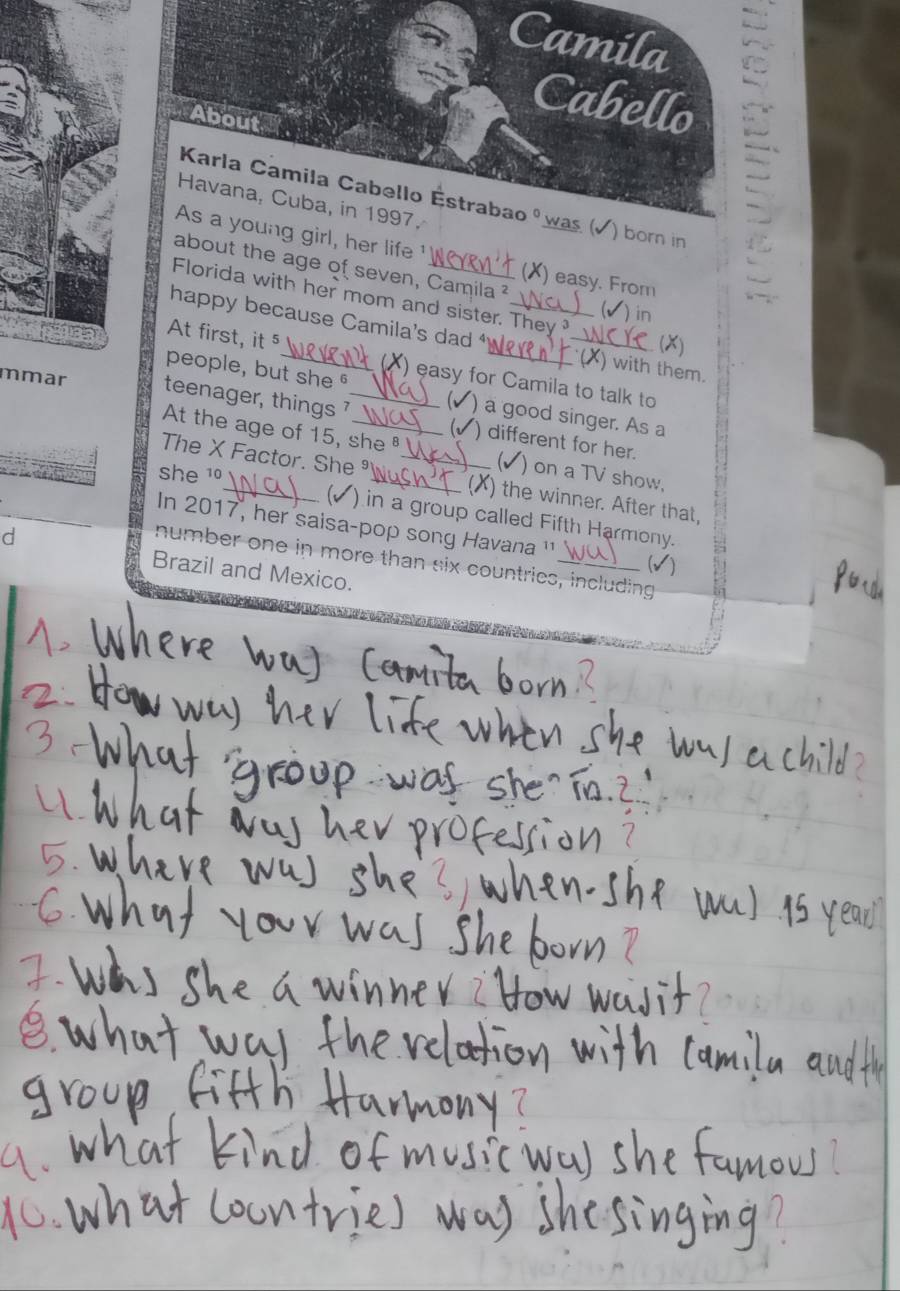 Camila
Cabello
Entertainment
About
Karla Camila Cabello Estrabao ⁰ was (✓) born in
Havana, Cuba, in 1997.
As a young girl, her life ¹ weren't (X) easy. From
about the age of seven, Camila ² was (✓) in
Florida with her mom and sister. They ³ were (X)
happy because Camila's dad ⁴ weren't (X) with them.
At first, it ⁵ weren't (X) easy for Camila to talk to
people, but she ⁶ was (✓) a good singer. As a
teenager, things ⁷ was (✓) different for her.
At the age of 15, she ⁸ was (✓) on a TV show,
The X Factor. She ⁹ wasn't (X) the winner. After that,
she ¹⁰ was (✓) in a group called Fifth Harmony.
In 2017, her salsa-pop song Havana ¹¹ was (✓)
number one in more than six countries, including
Brazil and Mexico.
mmar
d
1. Where was Camila born?
2. How was her life when she was a child?
3. What group was she in?
4. What was her profession?
5. Where was she?, when she was 15 years
6. What your was she born?
7. Was she a winner? How was it?
8. What was the relation with Camila and the
group fifth Harmony?
9. What kind of music was she famous?
10. What countries was she singing?